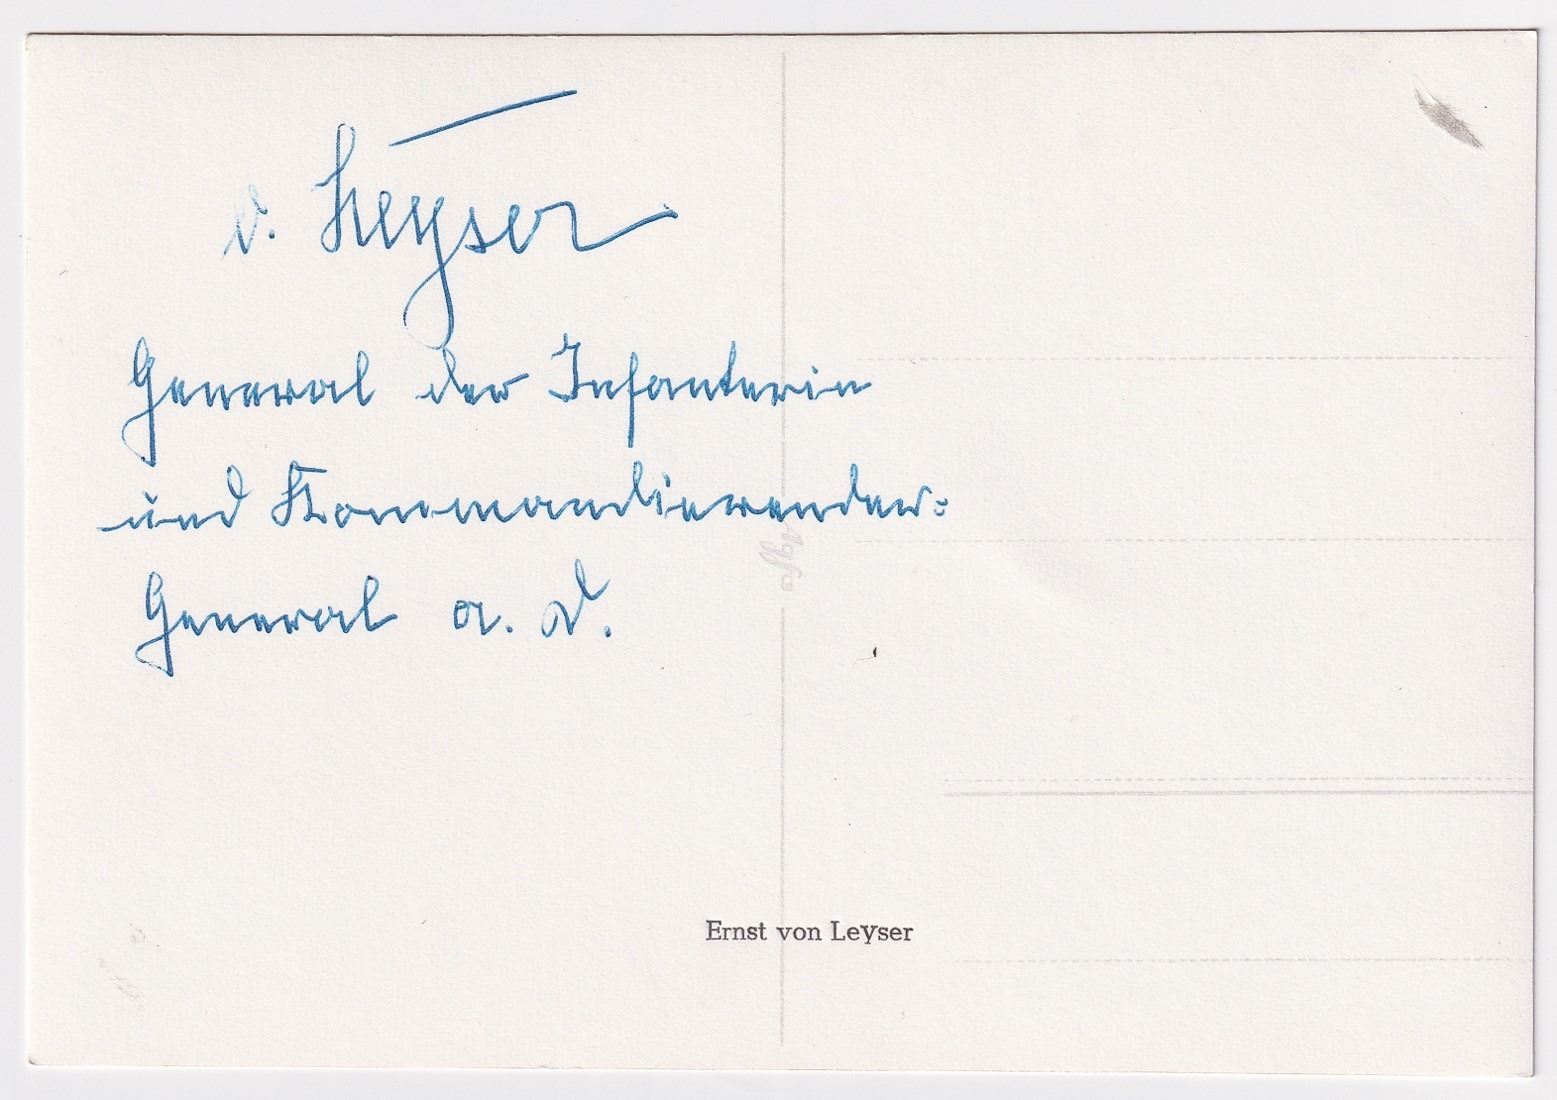 v. Leyser
General der Infanterie
und Kommandierender-
General a. D.
Agfa
Ernst von Leyser